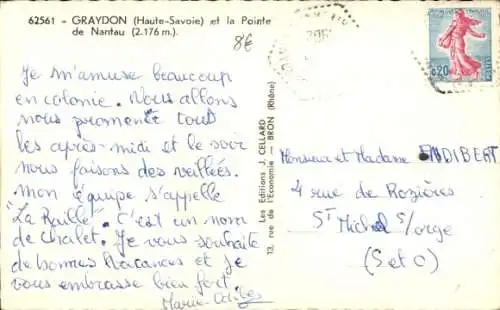 62561 - GRAYDON (Haute-Savoie) et la Pointe
de Nantau (2.176 m.).
8€
Je m'amuse beaucoup
en colonie. Nous allons
nous promener tous
les après-midi et le soir
nous faisons des veillées.
mon équipe s'appelle
"La Raille". C'est un nom
de chalet. Je vous souhaite
de bonnes vacances et je
vous embrasse bien fort
Marie-Odile
13, rue Les Editions J. CELLARD
de l'Economie — BRON (Rhône)
0,20
Monsieur et Madame ENDIBERT
4 rue de Rozières
ST Michel s/orge
(S et O)